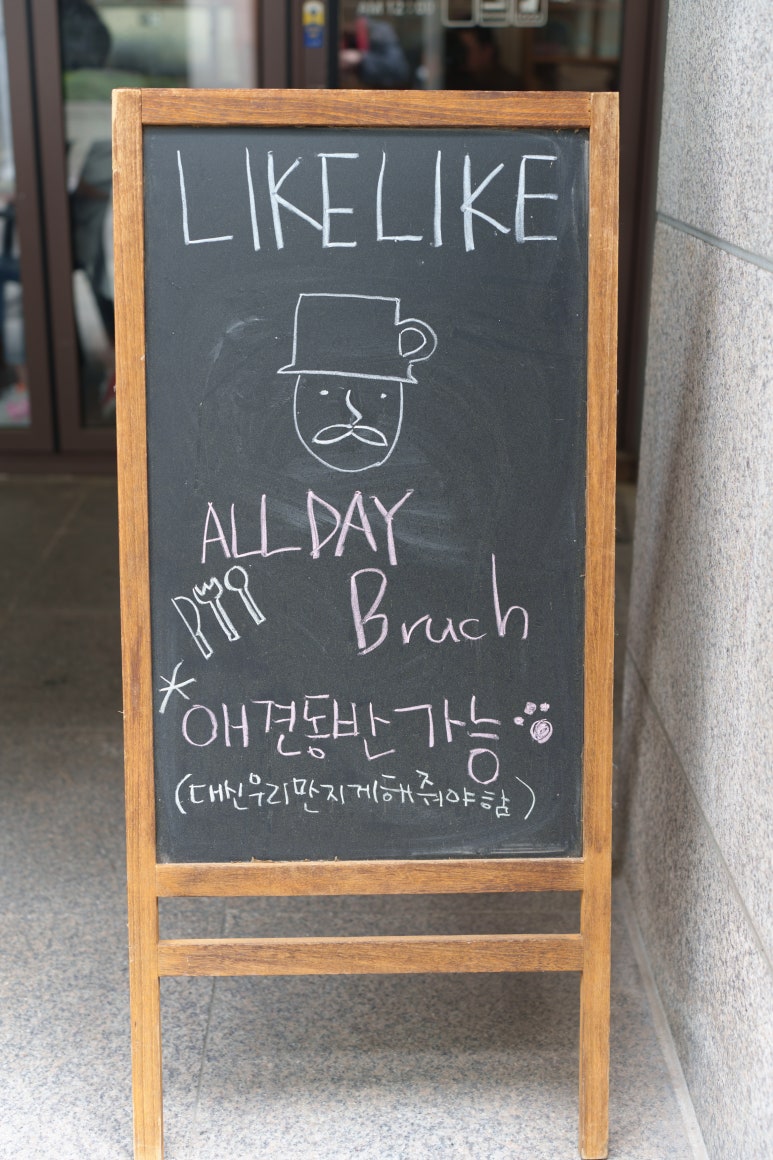 AM 12:00
LIKELIKE
ALL DAY
Bruch
*애견동반가능
(대신우리만지게해줘야함)